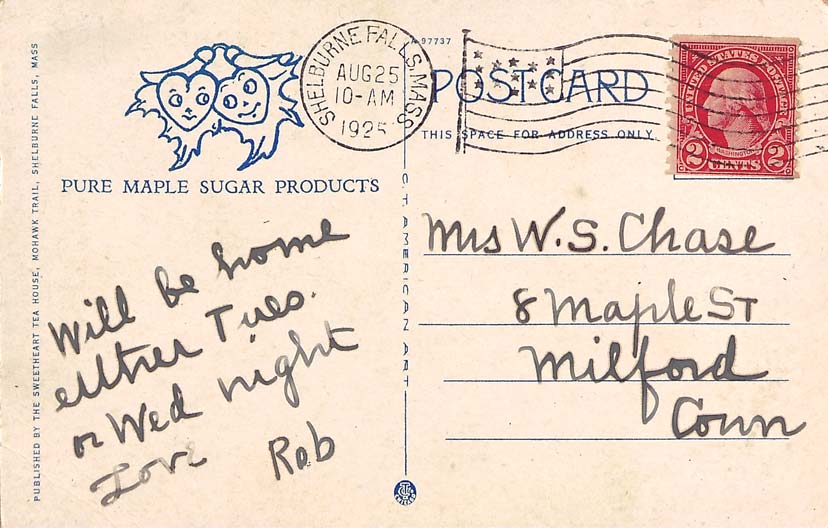 PUBLISHED BY THE SWEETHEART TEA HOUSE, MOHAWK TRAIL, SHELBURNE FALLS, MASS
PURE MAPLE SUGAR PRODUCTS
Will be home
either Tues.
or Wed night
Love Rob
SHELBURNE FALLS, MASS
AUG 25
10-AM
1925
A 97737
POST CARD
THIS SPACE FOR ADDRESS ONLY
C. T. AMERICAN ART
UNITED STATES POSTAGE
WASHINGTON
2 CENTS 2
Mrs W. S. Chase
8 Maple ST
Milford
Conn